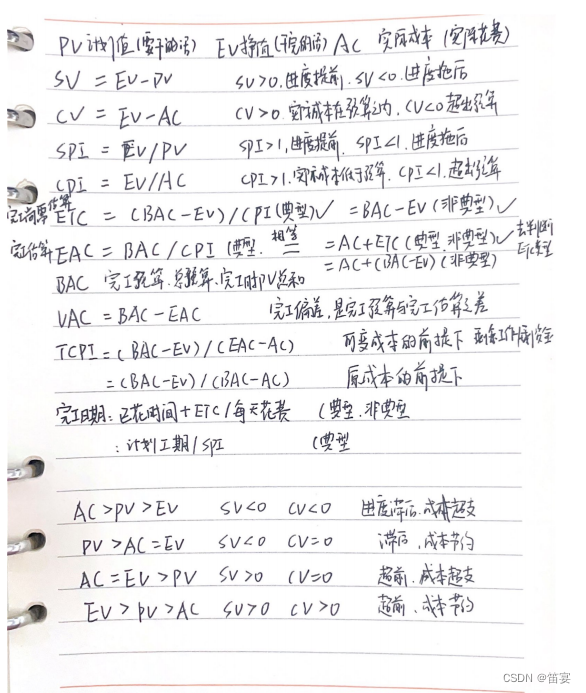 PV 计划值(要干的活) EV 挣值(干完的活) AC 实际成本 (实际花费)
SV = EV-PV SV>0,进度提前,SV<0,进度拖后
CV = EV-AC CV>0,实际成本在预算之内,CV<0超出预算
SPI = EV/PV SPI>1,进度提前, SPI<1,进度拖后
CPI = EV/AC CPI>1,实际成本低于预算, CPI<1,超出预算
完工尚需估算 ETC = (BAC-EV)/CPI(典型)✓ =BAC-EV(非典型)✓
完工估算 EAC = BAC/CPI (典型. 相等 = =AC+ETC(典型,非典型)✓ 去判断ETC类型
=AC+(BAC-EV)(非典型)
BAC 完工预算.总预算.完工时PV总和
VAC = BAC-EAC 完工偏差,是完工预算与完工估算之差
TCPI=(BAC-EV)/(EAC-AC) 可变成本的前提下
=(BAC-EV)/(BAC-AC) 原成本的前提下
完工日期:已花时间+ETC/每天花费 (典型.非典型
:计划工期/SPI (典型
AC>PV>EV SV<0 CV<0 进度滞后.成本超支
PV>AC=EV SV<0 CV=0 滞后,成本节约
AC=EV>PV SV>0 CV=0 超前,成本超支
EV>PV>AC SV>0 CV>0 超前,成本节约
CSDN @笛宴